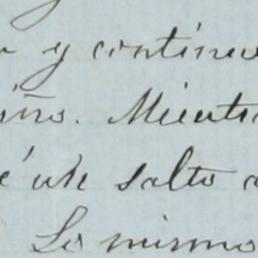 y continu
iño. Mient
é un salto a
Lo mismo